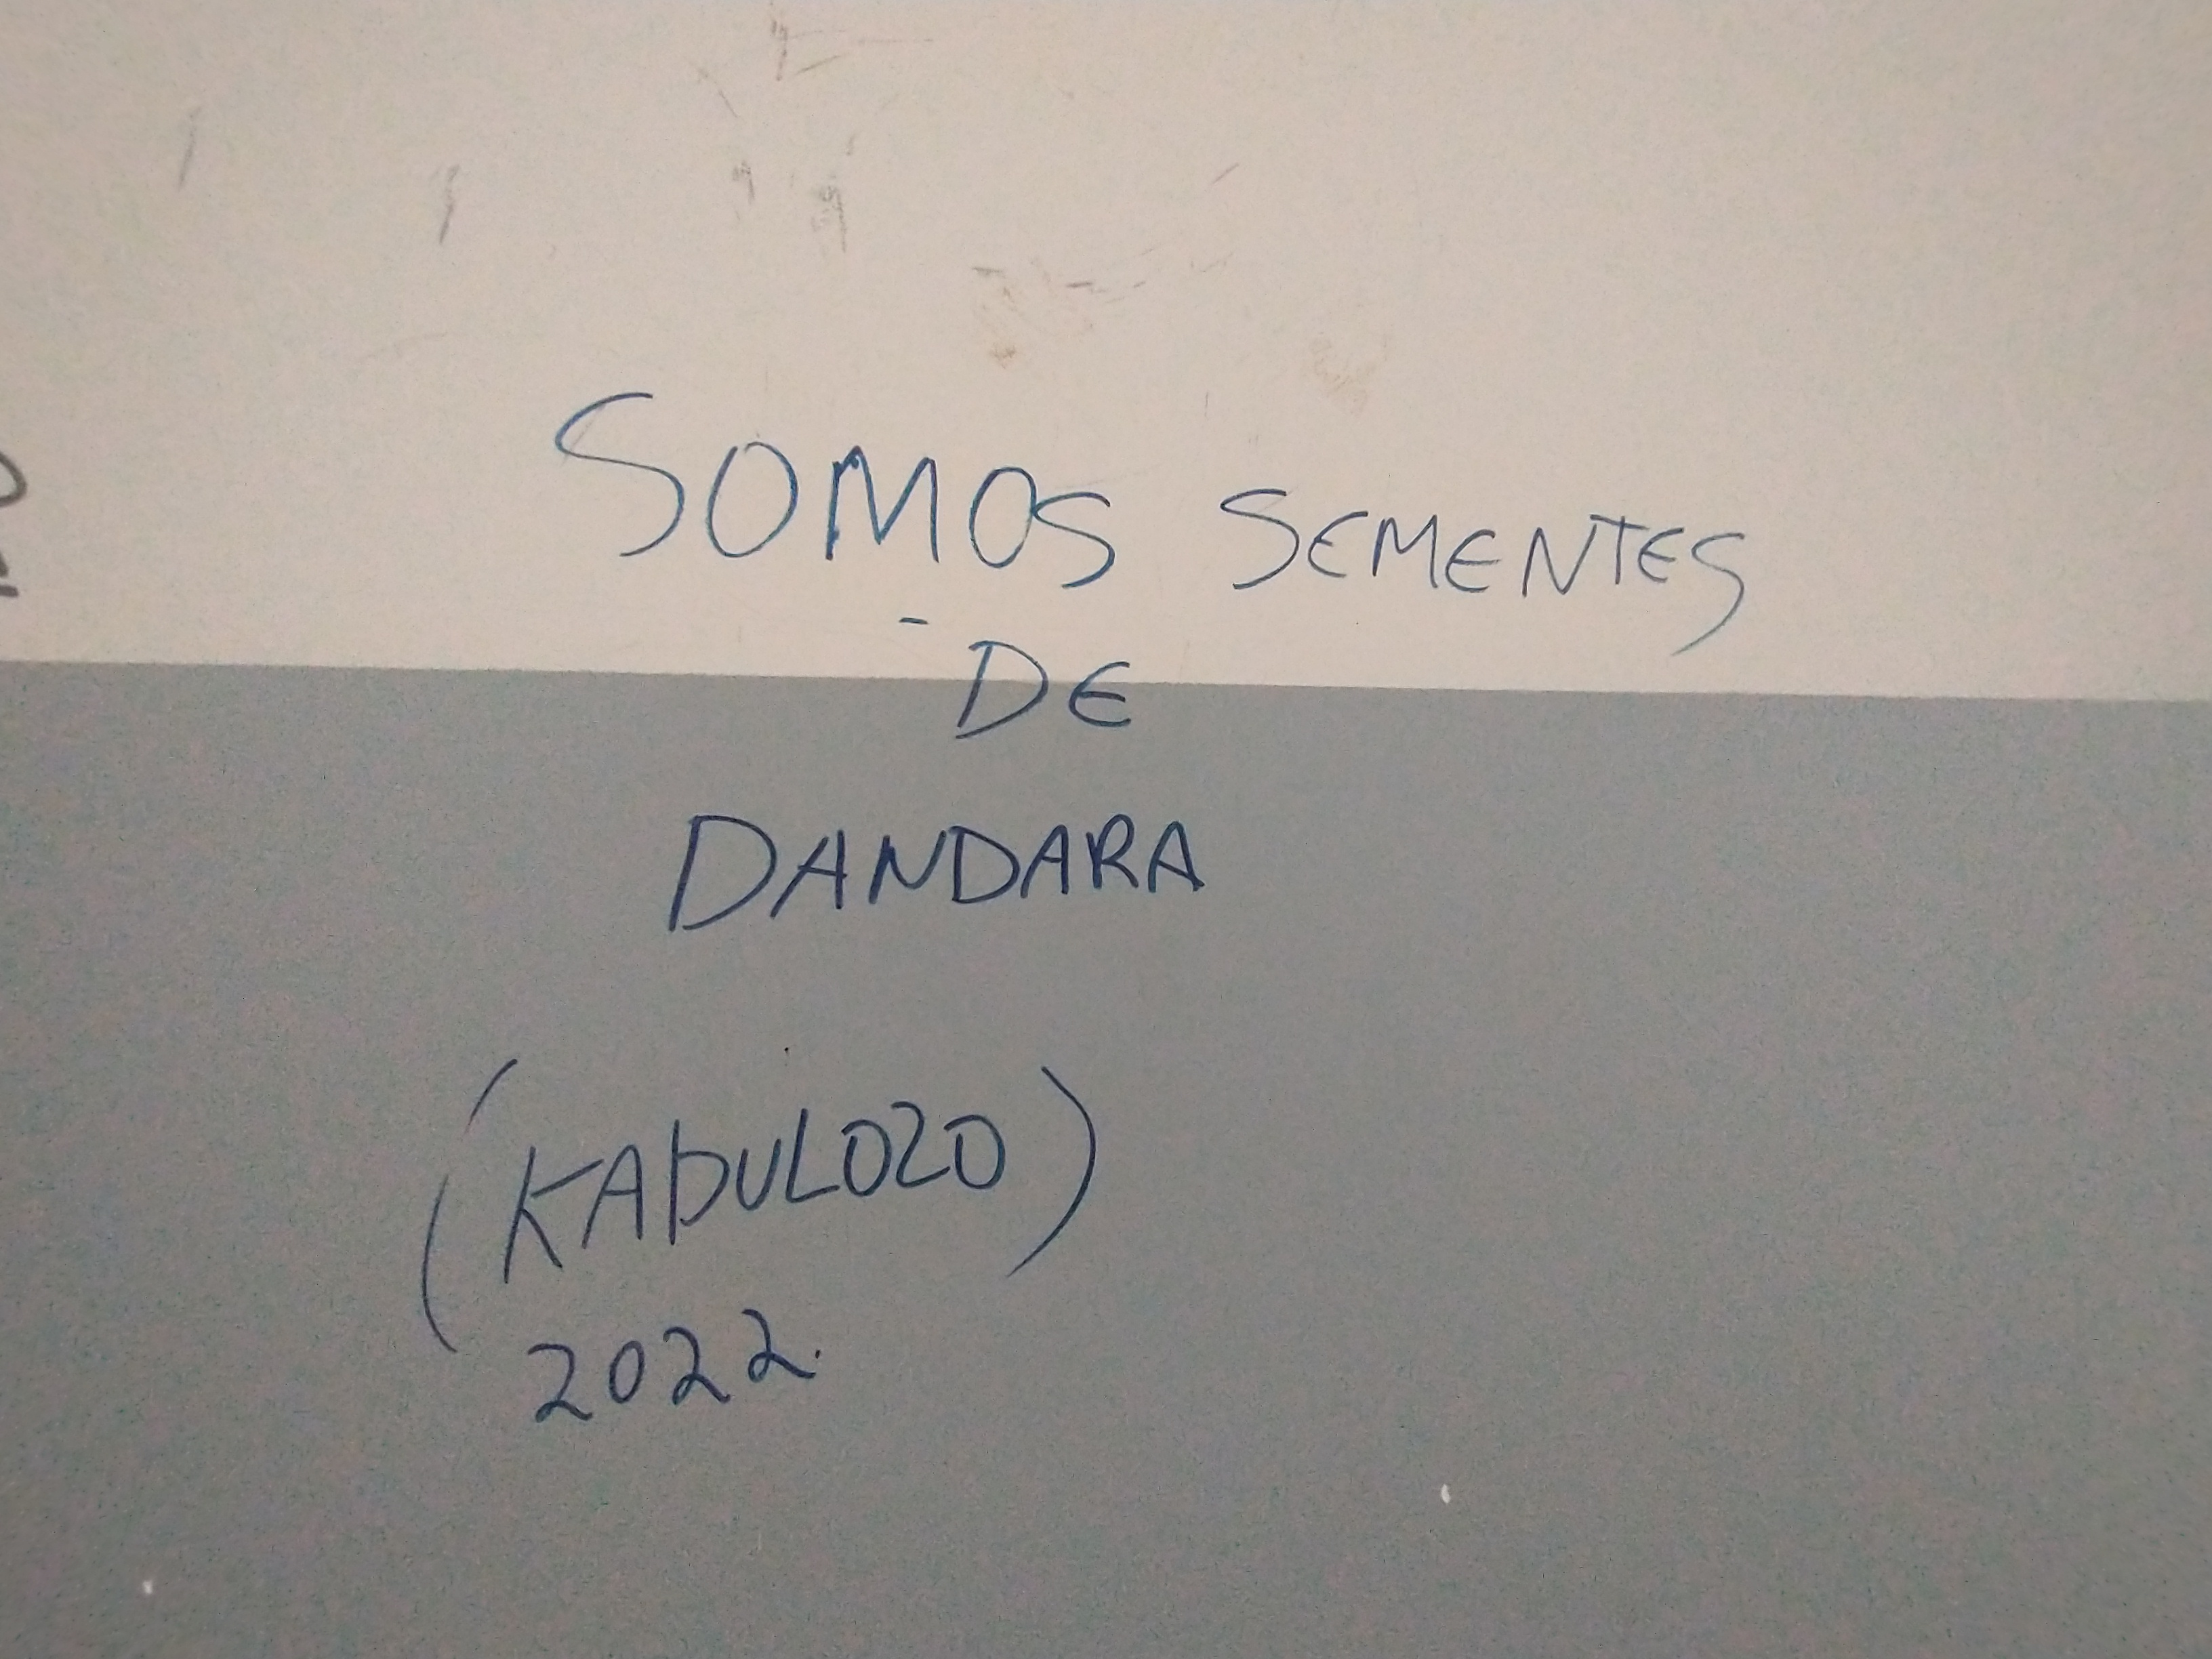 SOMOS SEMENTES
DE
DANDARA
(KADULOZO)
2022.